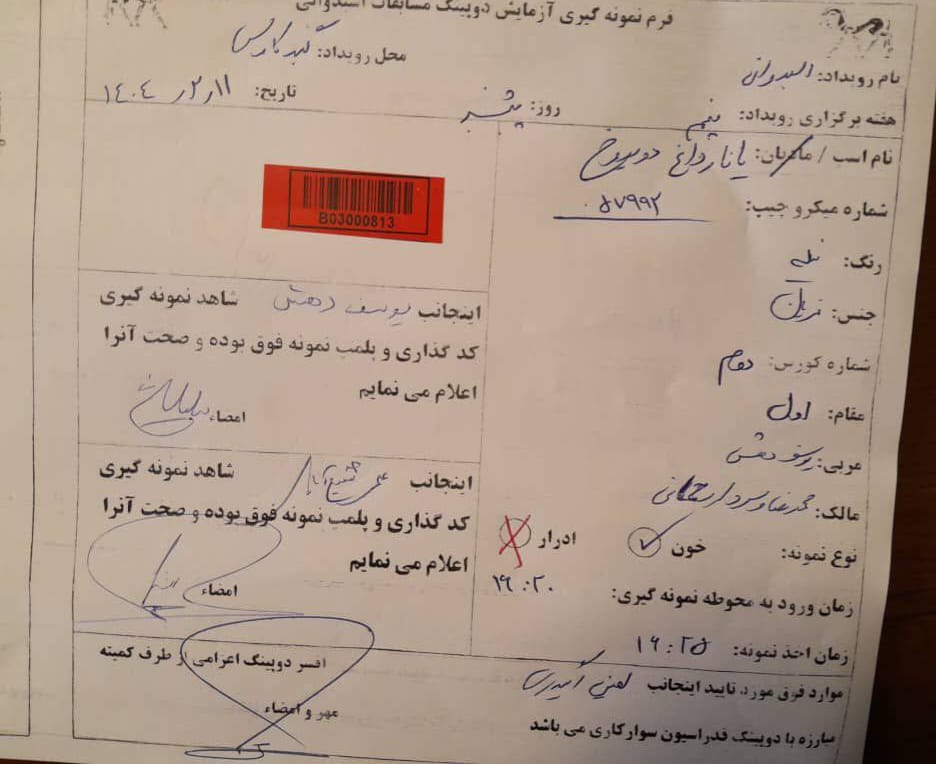 فرم نمونه گیری آزمایش دوپینگ مسابقات اسبدوانی
نام رویداد: اسبدوانی
محل رویداد: گنبد کاووس
هفته برگزاری رویداد: پنجم
روز: پنجشنبه
تاریخ: ۱۴۰۴/۲/۱۱
نام اسب / مادیان: یانارداغ
شماره میکرو چیپ: ۵۷۹۹۲
رنگ: نیله
جنس: نریان
شماره کورس: دوم
مقام: اول
مربی: یوسف
مالک:
نوع نمونه: خون ✓ ادرار
زمان ورود به محوطه نمونه گیری: ۱۶:۲۰
زمان اخذ نمونه: ۱۶:۲۵
موارد فوق مورد تایید اینجانب
مبارزه با دوپینگ فدراسیون سوارکاری می باشد
B03000813
اینجانب یوسف شاهد نمونه گیری
کد گذاری و پلمب نمونه فوق بوده و صحت آنرا
اعلام می نمایم
امضاء
اینجانب علی شاهد نمونه گیری
کد گذاری و پلمب نمونه فوق بوده و صحت آنرا
اعلام می نمایم
امضاء
افسر دوپینگ اعزامی از طرف کمیته
مهر و امضاء